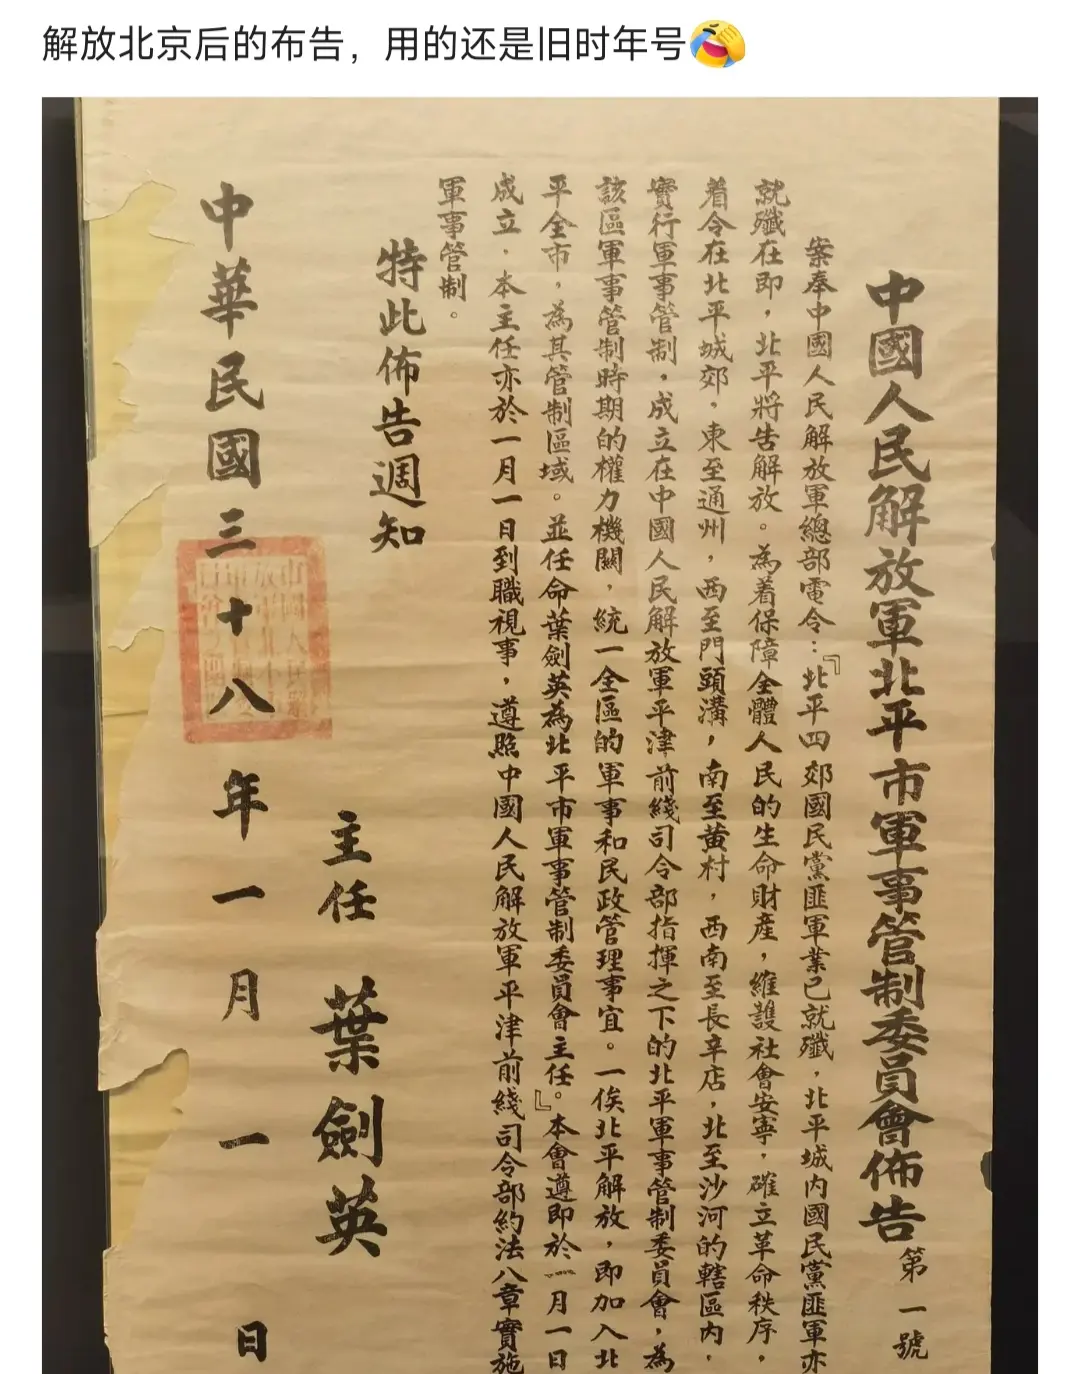 解放北京后的布告，用的还是旧时年号🤣
中國人民解放軍北平市軍事管制委員會佈告 第一號
案奉中國人民解放軍總部電令：『北平四郊國民黨匪軍業已就殲，北平城内國民黨匪軍亦
就殲在即，北平將告解放。為着保障全體人民的生命財產，維護社會安寧，確立革命秩序，
着令在北平城郊，東至通州，西至門頭溝，南至黄村，西南至長辛店，北至沙河的轄區内，
實行軍事管制，成立在中國人民解放軍平津前綫司令部指揮之下的北平軍事管制委員會，為
該區軍事管制時期的權力機關，統一全區的軍事和民政管理事宜。一俟北平解放，即加入北
平全市，為其管制區域。並任命葉劍英為北平市軍事管制委員會主任。』本會遵即於一月一日
成立，本主任亦於一月一日到職視事，遵照中國人民解放軍平津前綫司令部約法八章實施
軍事管制。
特此佈告週知
主任 葉劍英
中華民國三十八年一月一日